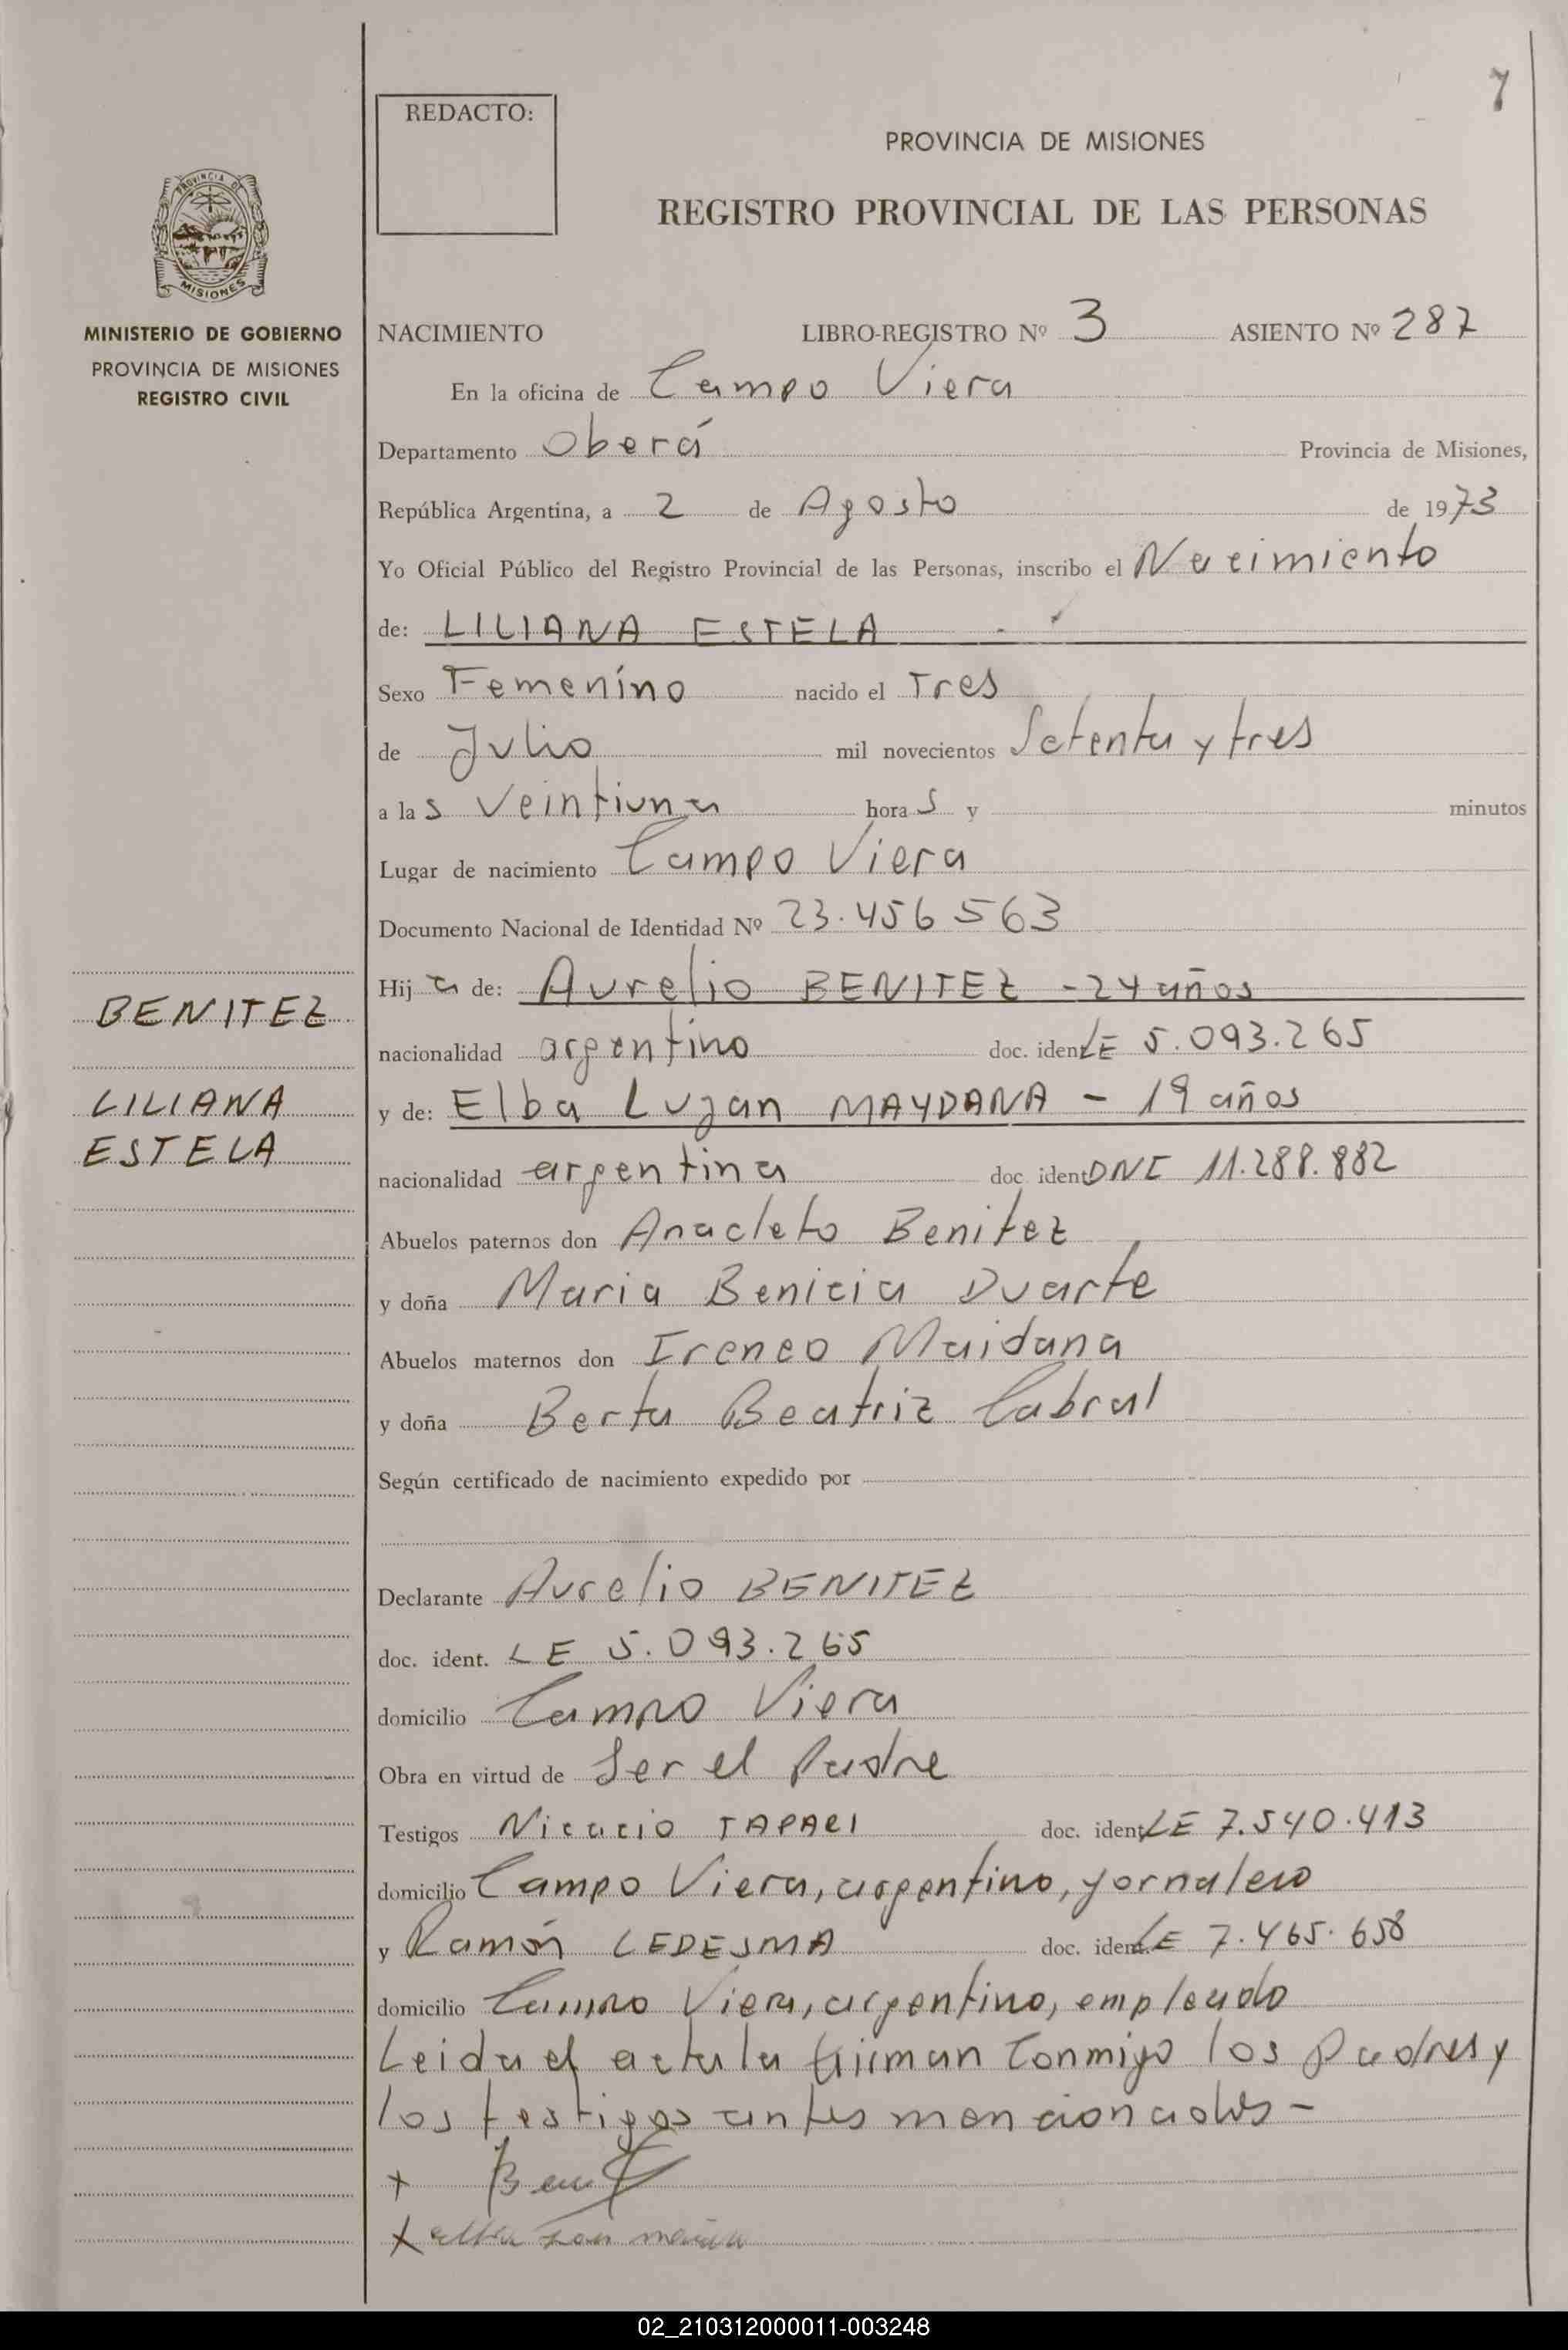 7
REDACTO:
PROVINCIA DE MISIONES
REGISTRO PROVINCIAL DE LAS PERSONAS
PROVINCIA DE
MISIONES
MINISTERIO DE GOBIERNO
PROVINCIA DE MISIONES
REGISTRO CIVIL
NACIMIENTO LIBRO-REGISTRO Nº 3 ASIENTO Nº 287
En la oficina de Campo Viera
Departamento Oberá Provincia de Misiones,
República Argentina, a 2 de Agosto de 1973
Yo Oficial Público del Registro Provincial de las Personas, inscribo el Nacimiento
de: LILIANA ESTELA
Sexo Femenino nacido el Tres
de Julio mil novecientos Setenta y tres
a las veintiuna horas y minutos
Lugar de nacimiento Campo Viera
Documento Nacional de Identidad Nº 23.456 563
Hija de: Aurelio BENITEZ - 24 años
nacionalidad argentino doc. ident LE 5.093.265
y de: Elba Lujan MAYDANA - 19 años
nacionalidad argentina doc. ident DNI 11.288.882
Abuelos paternos don Anacleto Benitez
y doña Maria Benicia Duarte
Abuelos maternos don Ireneo Maidana
y doña Berta Beatriz Cabral
Según certificado de nacimiento expedido por
Declarante Aurelio BENITEZ
doc. ident. LE 5.093.265
domicilio Campo Viera
Obra en virtud de Ser el Padre
Testigos Nicacio TAPARI doc. ident LE 7.540.413
domicilio Campo Viera, argentino, jornalero
y Ramón LEDESMA doc. ident. LE 7.465.658
domicilio Campo Viera, argentino, empleado
Leida el acta la firman conmigo los Padres y
los testigos antes mencionados -
+
x
BENITEZ
LILIANA
ESTELA
02_210312000011-003248